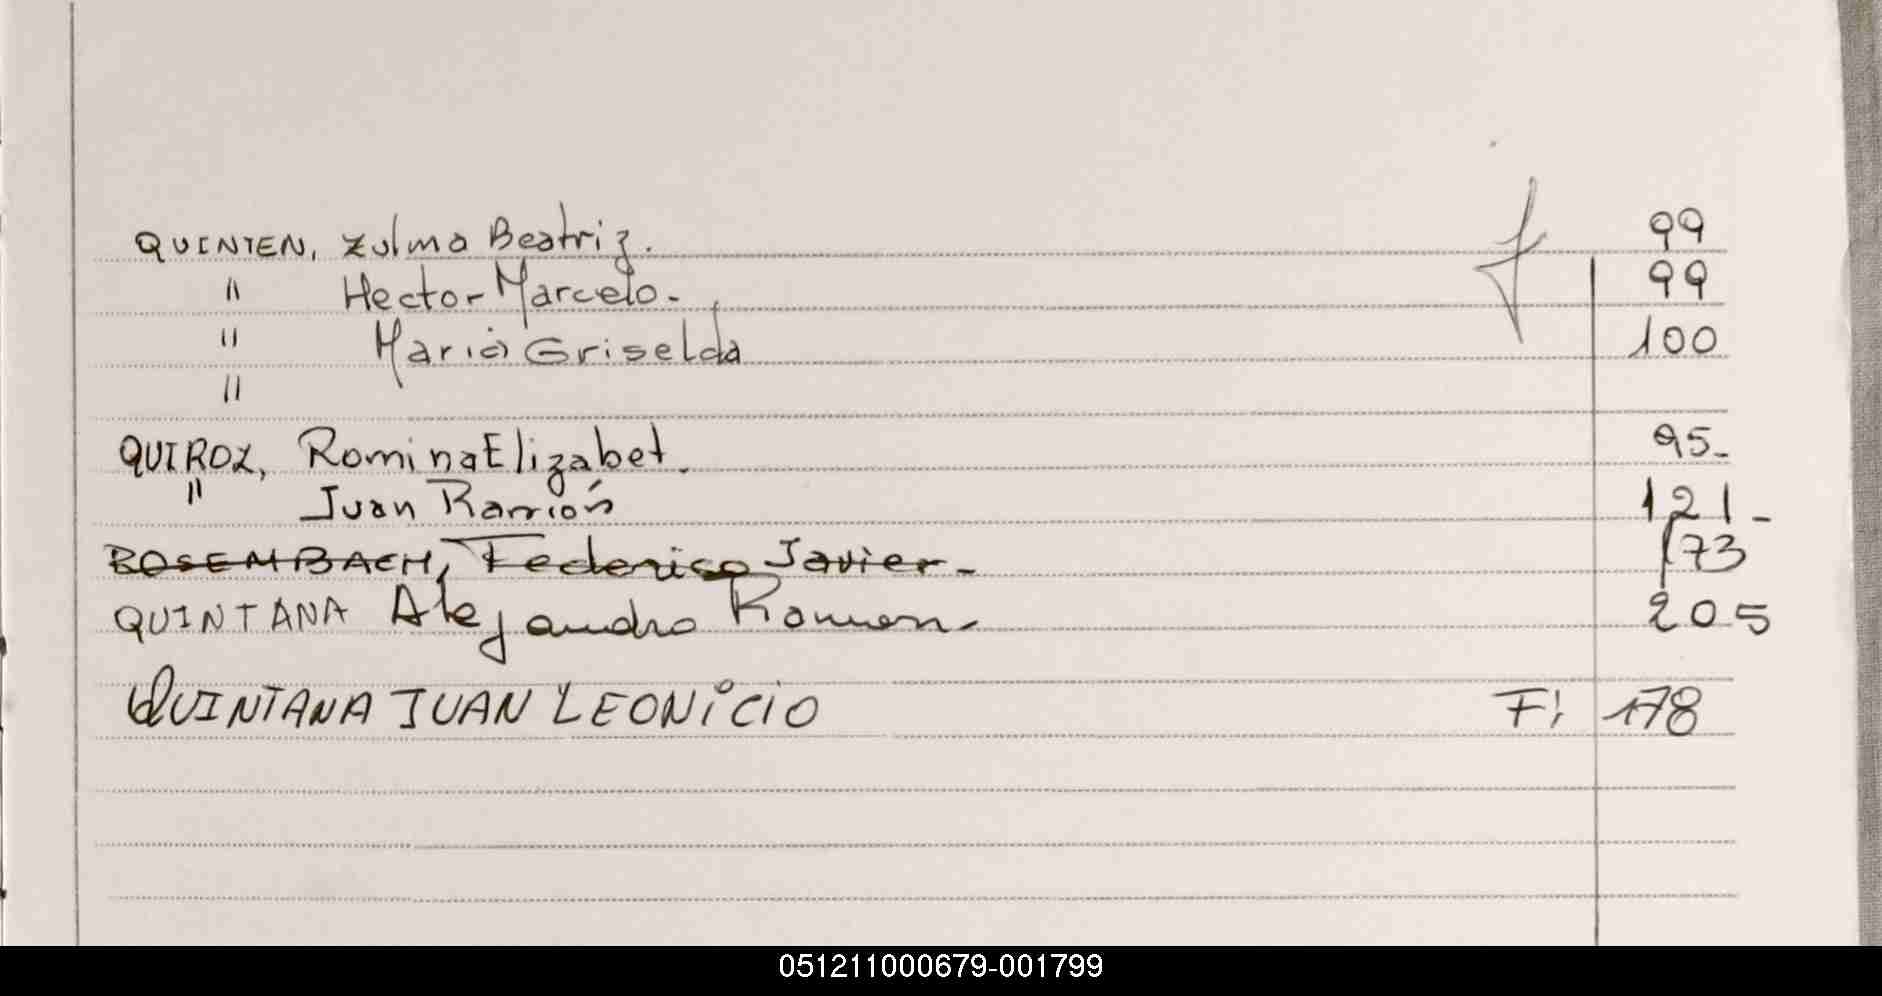 QUINTEN, Zulma Beatriz. f 99
" Hector Marcelo. 99
" Maria Griselda 100
"
QUIROZ, Romina Elizabet. 95-
" Juan Ramón 121-
BOSEMBACH, Federico Javier- 173
QUINTANA Alejandro Ramon- 205
QUINTANA JUAN LEONiCiO F: 178
051211000679-001799